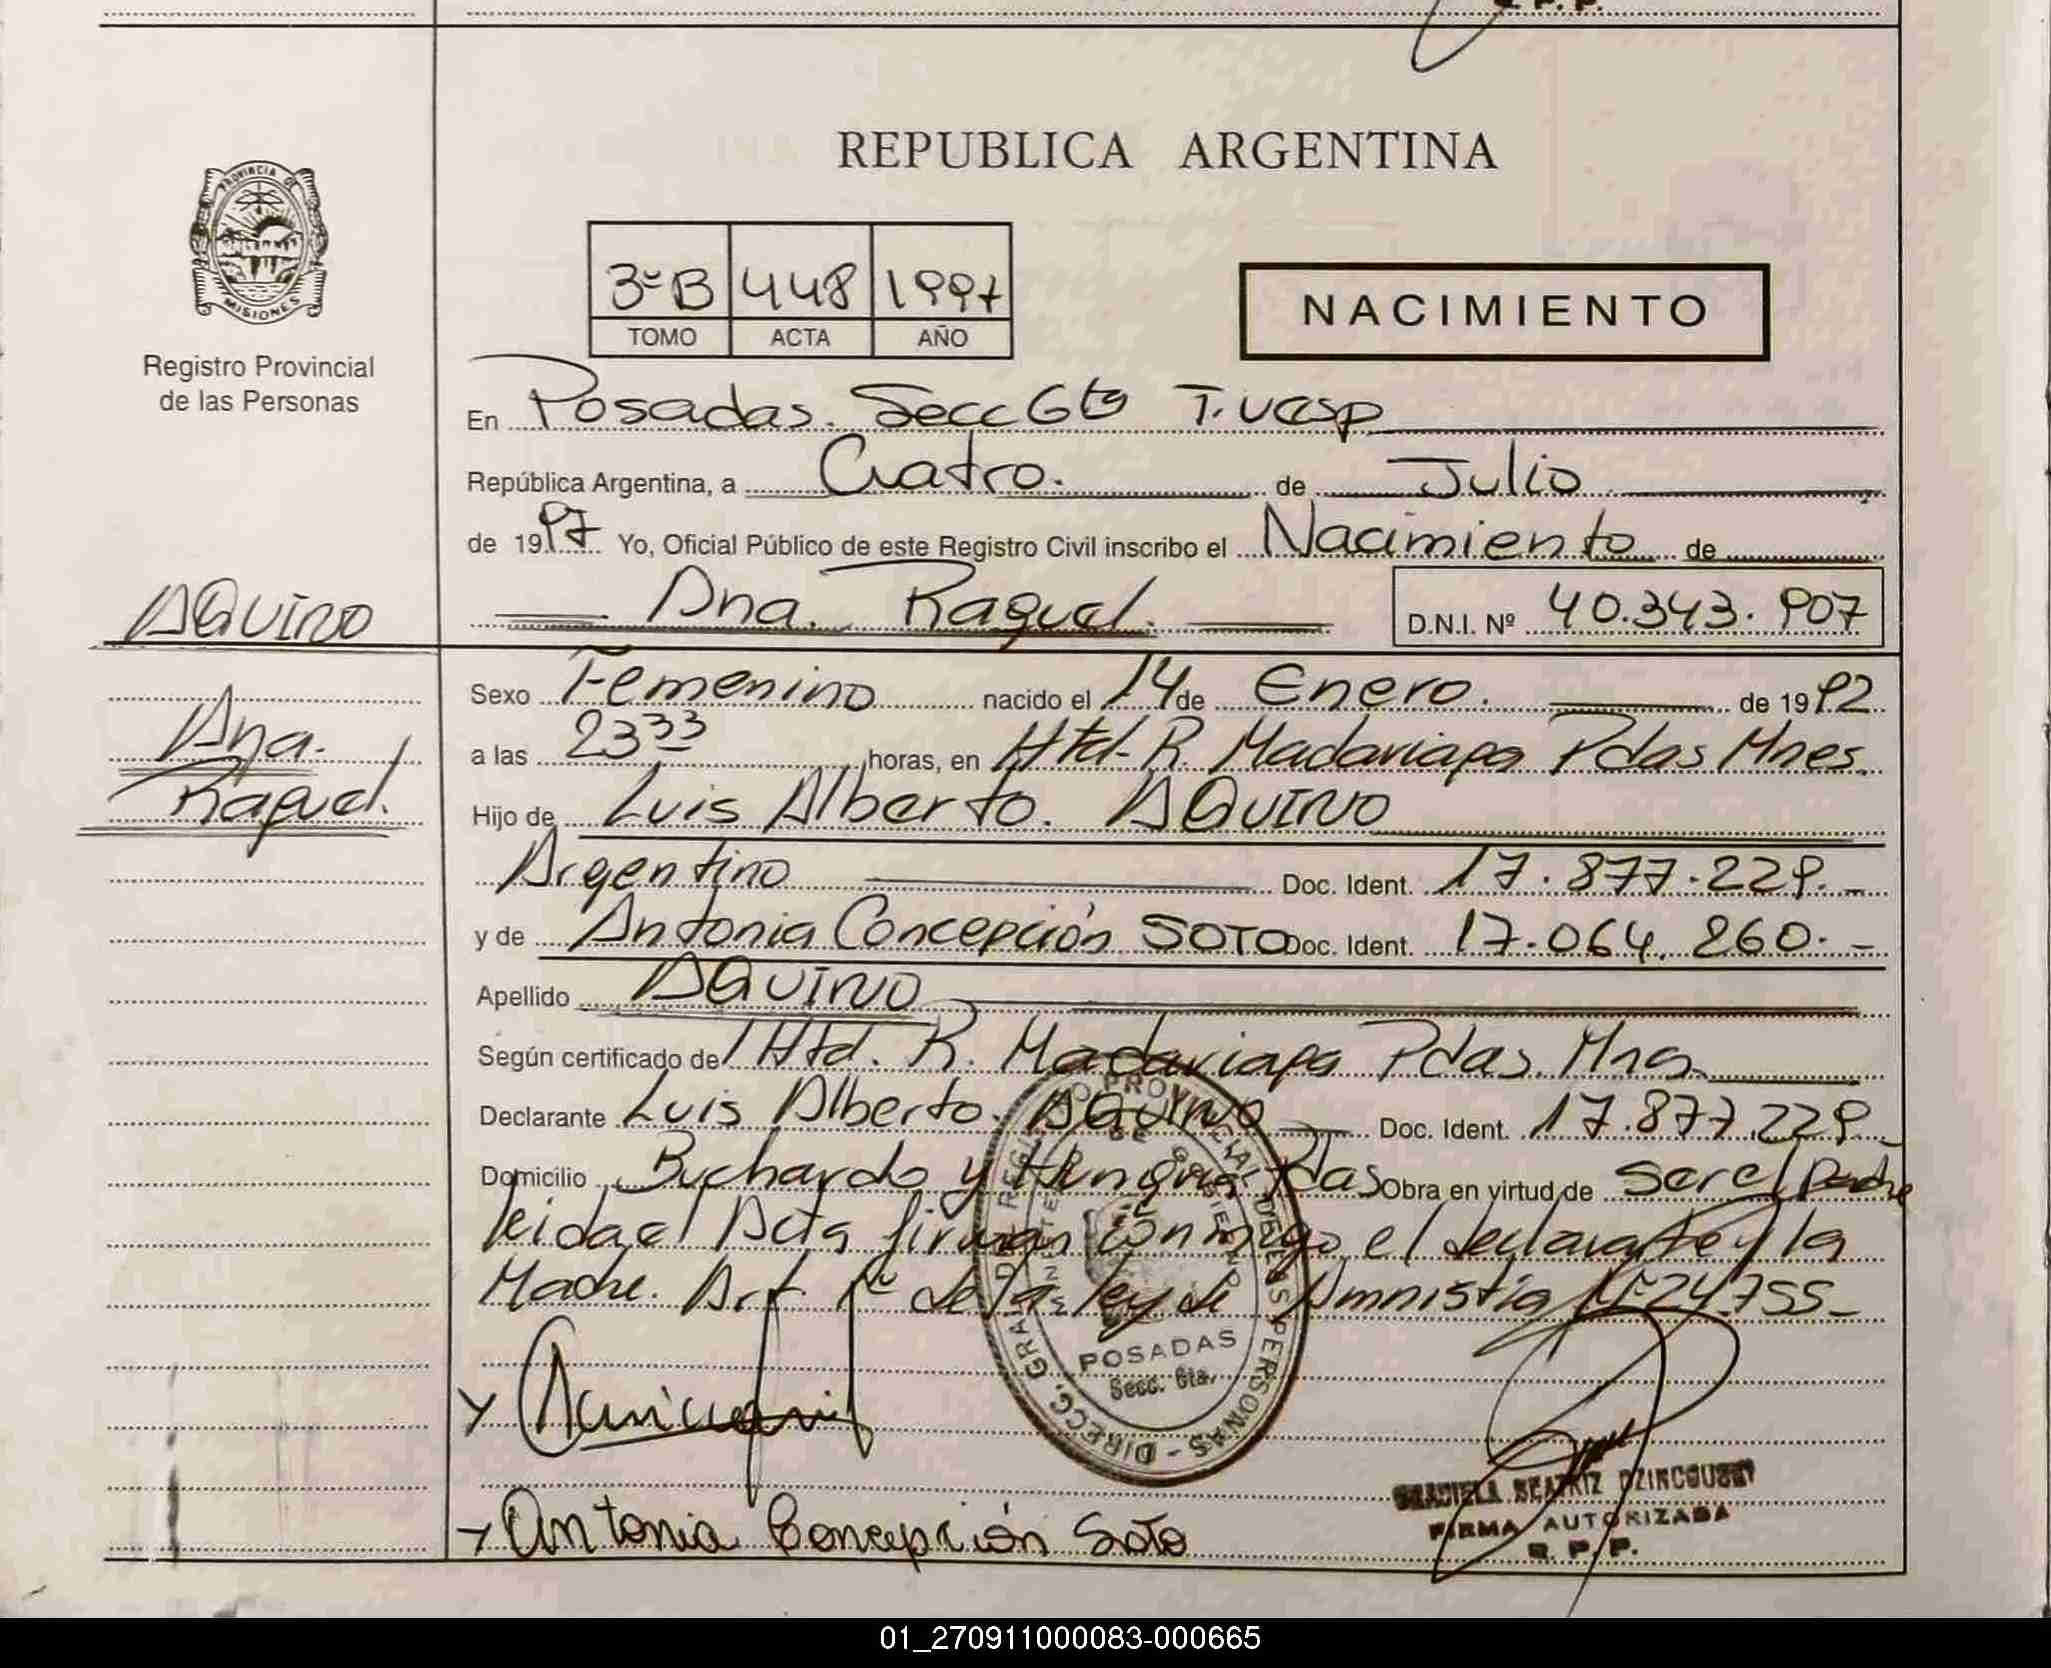 REPUBLICA ARGENTINA
PROVINCIA DE
MISIONES
Registro Provincial
de las Personas
3º B 448 1997
TOMO ACTA AÑO
NACIMIENTO
En Posadas. Secc 6ta T. vesp
República Argentina, a Cuatro. de Julio
de 1997 Yo, Oficial Público de este Registro Civil inscribo el Nacimiento de
Ana. Raquel. D.N.I. Nº 40.343.907
AQUINO
Ana.
Raquel.
Sexo Femenino nacido el 14 de Enero. de 1992
a las 23 33 horas, en Htal-R. Madariaga Pdas Mnes.
Hijo de Luis Alberto. AQUINO
Argentino Doc. Ident. 17.877.229.-
y de Antonia Concepción SOTO Doc. Ident. 17.064.260.-
Apellido AQUINO
Según certificado de Htal. R. Madariaga Pdas. Mns.
Declarante Luis Alberto. AQUINO Doc. Ident. 17.877.229
Domicilio Buchardo y Hungria Pdas Obra en virtud de ser el Padre
leida el Acta firman conmigo el declarante y la
Madre. Art 1º de la ley de Amnistia Nº 24.755-
DIRECC. GRAL. DE REGISTRO PROVINCIAL DE LAS PERSONAS
POSADAS
Secc. 6ta.
Antonia Concepción Soto
GRACIELA BEATRIZ
FIRMA AUTORIZADA
R. P. P.
01_270911000083-000665